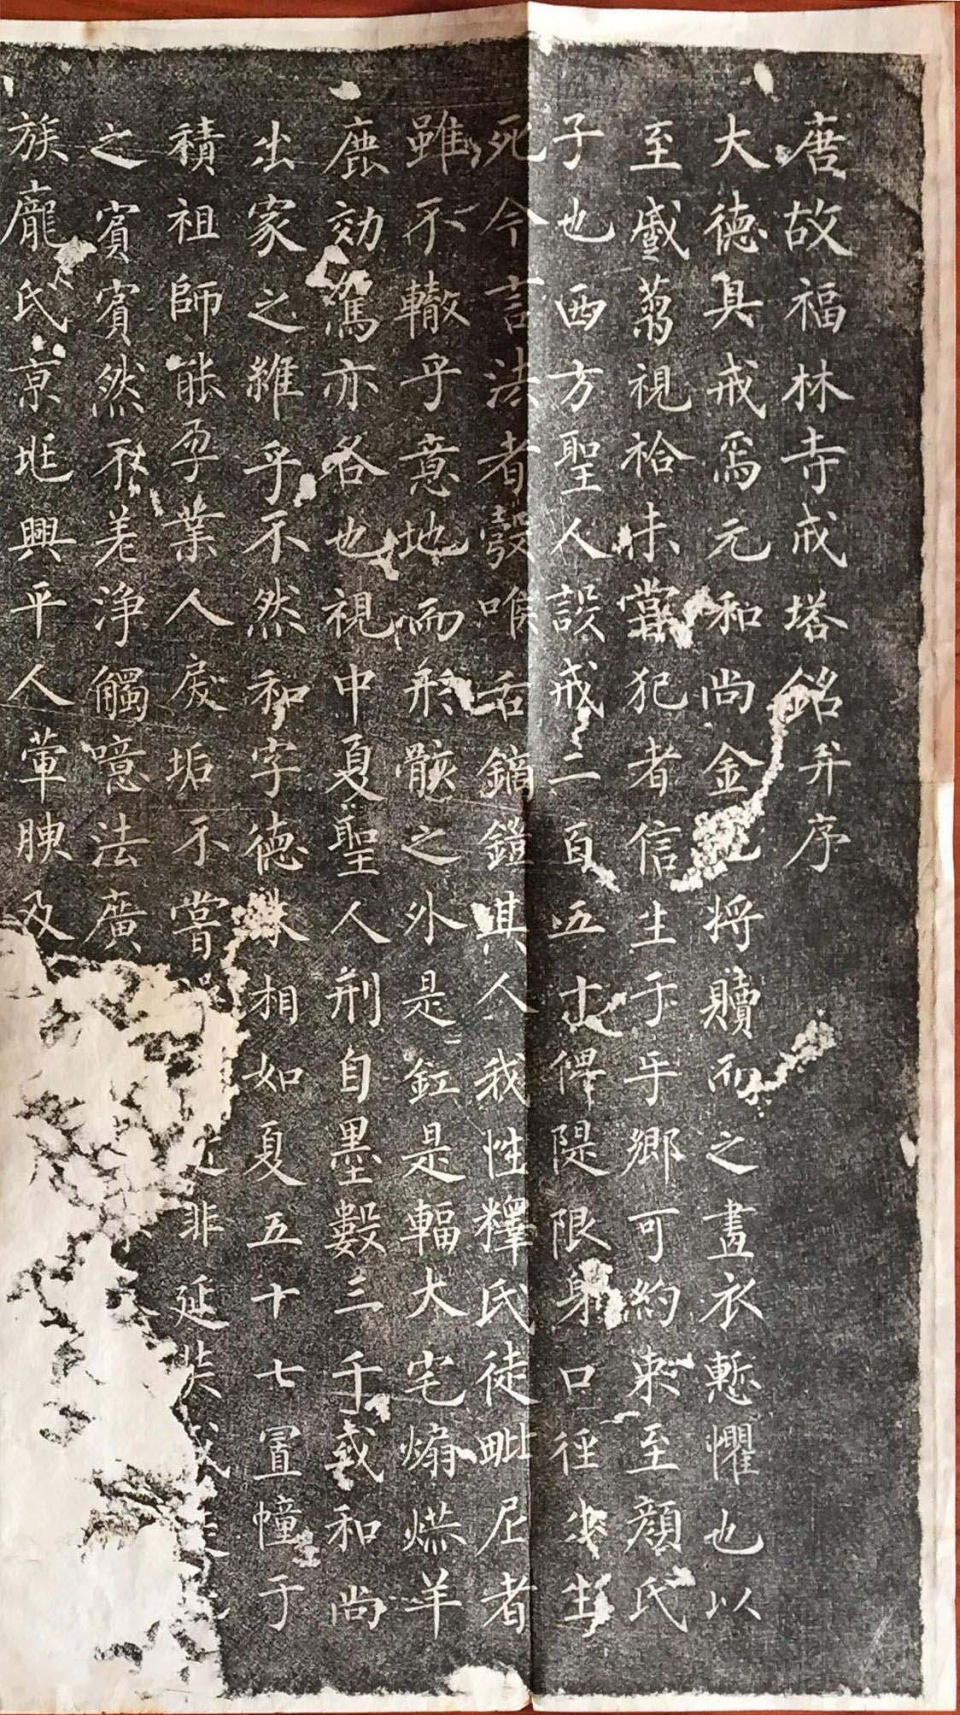 唐故福林寺戒塔銘并序
大德具戒焉元和尚金 将贖而之畫衣慙懼也以
至盛蒭視祫未甞犯者信生于乎鄉可約束至顔氏
子也西方聖人設戒二百五十俾隄限身口徑 生
死今言法者彀喉舌鏑鎧其人我性釋氏徒毗尼者
雖不轍乎意地而形骸之外是釭是輻大宅煽㷱羊
鹿効駕亦各也視中夏聖人刑自墨數三千或和尚
出家之維乎不然和字德殊相如夏五十七罝幢于
積祖師能孕業人戾垢不嘗 非延
之賓賓然不羌浄觸噫法廣
族龐氏京兆興平人葷腴及